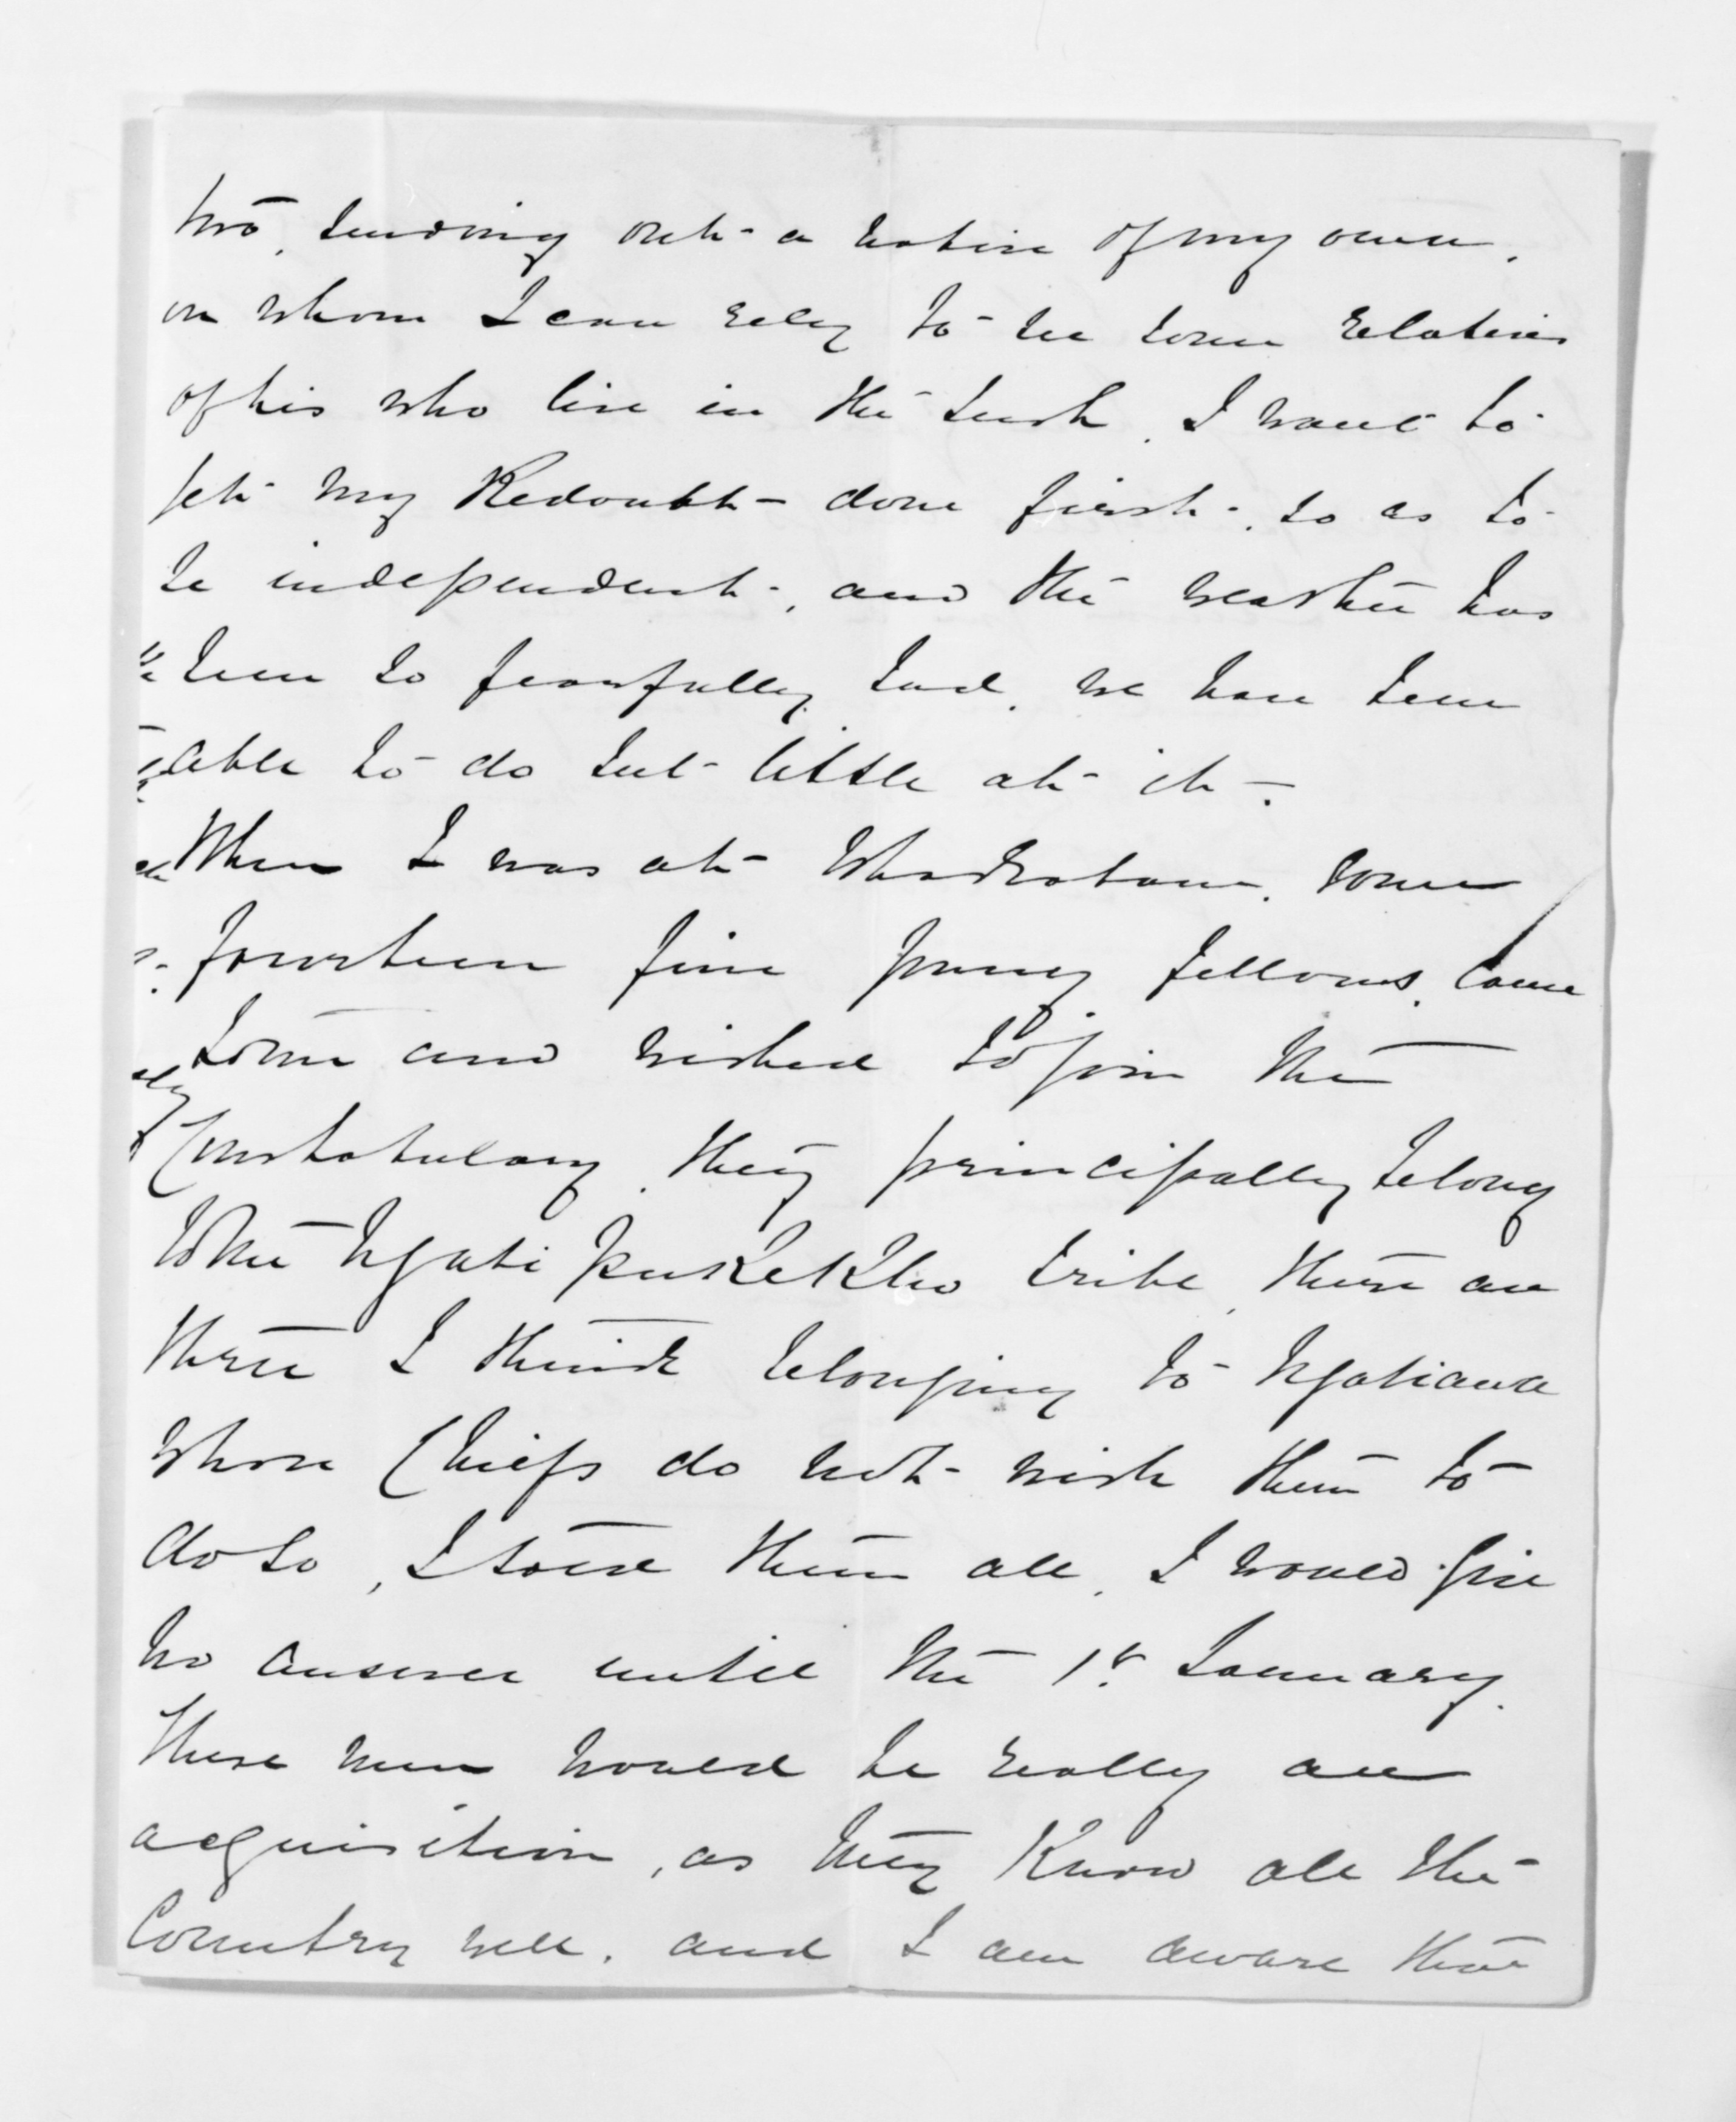 two, sending out a native of my own,
on whom I can rely to see some relatives
of his who live in the bush. I want to
get my Redoubt done first, so as to
be independent, and the weather has
been so fearfully bad, we have been
able to do but little at it.
When I was at Whakatane, some
fourteen fine young fellows, came
to me and wished to join the
Constabulary, they principally belong
to the Ngati pukekko tribe, there are
three I think belonging to Ngatiawa
whose Chiefs do not wish them to
do so, I told them all, I would give
no answer until the 1st January.
These men would be really an
acquisition, as they know all the
Country well, and I am aware that